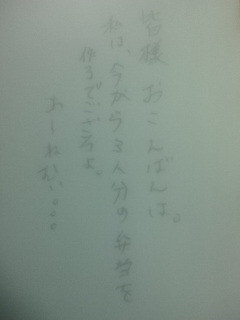 皆様 おこんばんは。
私は、今から3人分の弁当を
作るでござるよ。
あーねむい...